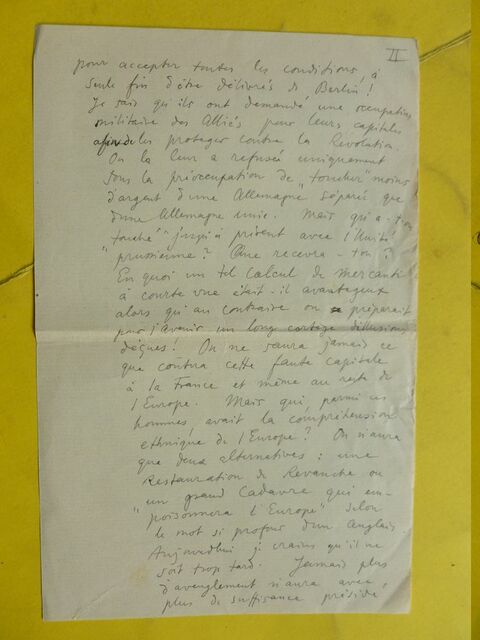 II
pour accepter toutes les conditions, à
seule fin d'être délivrés de Berlin!
Je sais qu'ils ont demandé une occupation
militaire des Alliés pour leurs capitales
afin de les protéger contre la Révolution.
On la leur a refusé uniquement
sous la préoccupation de "toucher" moins
d'argent d'une Allemagne séparée que
d'une Allemagne unie. Mais qu'a-t-on
"touché" jusqu'à présent avec l'Unité
"prussienne"? Que recevra-t-on?
En quoi un tel calcul de mercanti
à courte vue était-il avantageux
alors qu'au contraire on préparait
pour l'avenir un long cortège d'illusions
déçues! On ne saura jamais ce
que coûtera cette faute capitale
à la France et même au reste de
l'Europe. Mais qui parmi ces
hommes avait la compréhension
ethnique de l'Europe? On n'aura
que deux alternatives: une
Restauration de Revanche ou
"un grand Cadavre qui em-
poisonnera l'Europe" selon
le mot si profond d'un Anglais.
Aujourd'hui je crains qu'il ne
soit trop tard. Jamais plus
d'aveuglement n'aura avec
plus de suffisance présidé